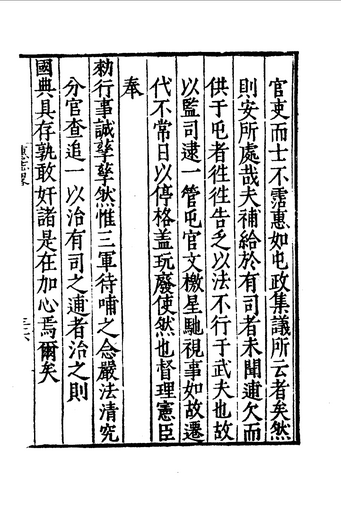 官吏而士不霑惠如屯政集議所云者矣然
則安所處哉夫補給於有司者未聞逋欠而
供于屯者徃徃告乏以法不行于武夫也故
以監司逮一管屯官文檄星馳視事如故遷
代不常日以停格盖玩廢使然也督理憲臣
奉
勑行事誠孳孳然惟三軍待哺之念嚴法清究
分官查追一以治有司之逋者治之則
國典具存孰敢奸諸是在加心焉爾矣